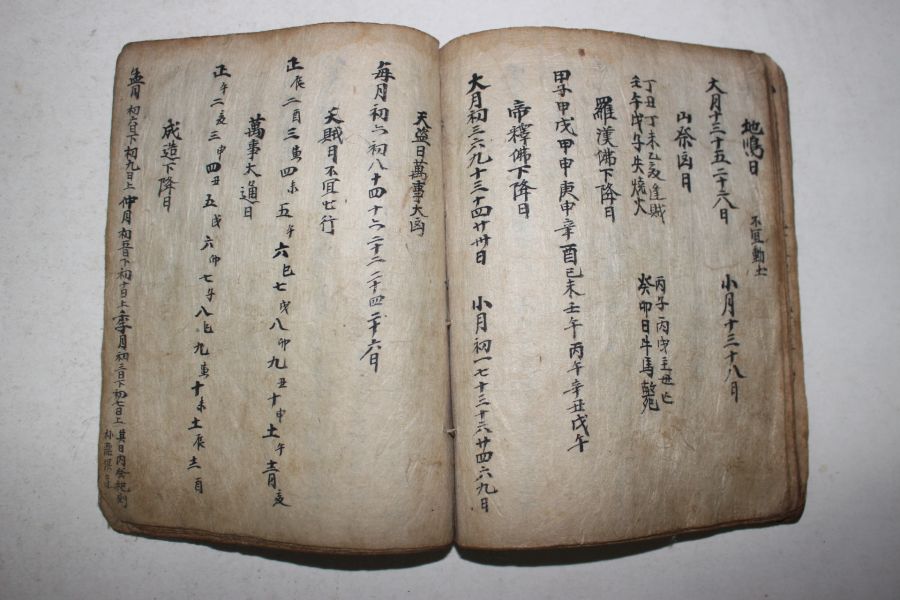 地鳴日 不宜動土
大月十三十五二十六八日 小月十三十八日
山祭凶日
丁丑丁未乙亥逢賊
壬午戊子失燒火
丙子丙戌主
癸卯日牛馬斃
羅漢佛下降日
甲子甲戌甲申庚申辛酉己未壬午丙午辛丑戊午
帝釋佛下降日
大月初三六九十三十四廿卅日 小月初一七十三十六廿四六九日
天盜日萬事大凶
每月初六初八十四十六二十二二十四二十六日
天賊日不宜出行
正辰二酉三寅四未五午六巳七戌八卯九丑十申十一午十二月亥
萬事大通日
正午二亥三申四丑五戌六卯七子八巳九寅十未十一辰十二酉
成造下降日
孟月初六日下初九日上仲月初五日下初十日上季月初三日下初七日上其日內祭祀則